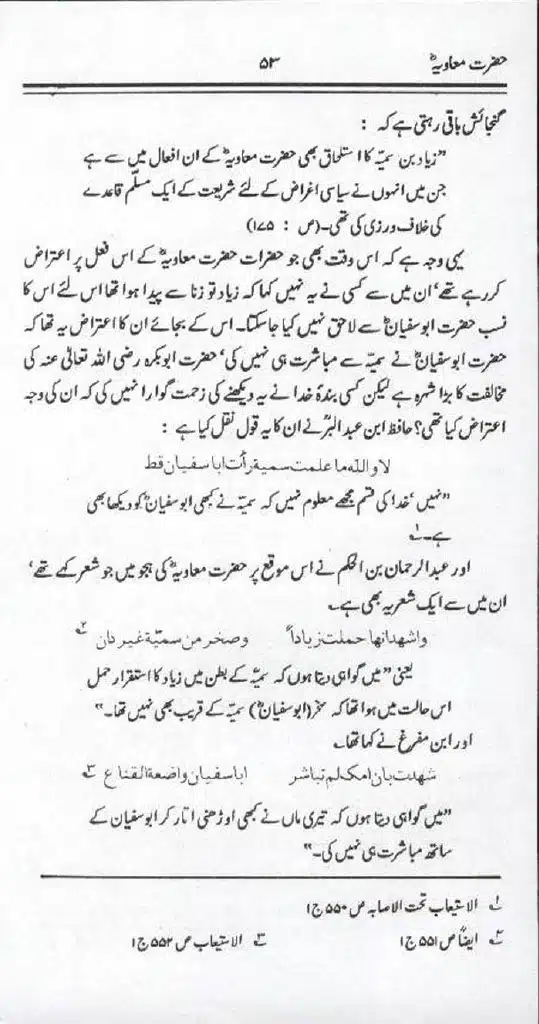 حضرت معاویہؓ ۵۳
گنجائش باقی رہتی ہے کہ :
”زیاد بن سمیہ کا استلحاق بھی حضرت معاویہؓ کے ان افعال میں سے ہے
جن میں انہوں نے سیاسی اغراض کے لئے شریعت کے ایک مسلّم قاعدے
کی خلاف ورزی کی تھی۔ (ص : ۱۷۵)
یہی وجہ ہے کہ اس وقت بھی جو حضرات حضرت معاویہؓ کے اس فعل پر اعتراض
کر رہے تھے‘ ان میں سے کسی نے یہ نہیں کہا کہ زیاد تو زنا سے پیدا ہوا تھا اس لئے اس کا
نسب حضرت ابوسفیانؓ سے لاحق نہیں کیا جاسکتا۔ اس کے بجائے ان کا اعتراض یہ تھا کہ
حضرت ابوسفیانؓ نے سمیہ سے مباشرت ہی نہیں کی‘ حضرت ابوبکرہ رضی اللہ تعالیٰ عنہ کی
مخالفت کا بڑا شہرہ ہے لیکن کسی بندۂ خدا نے یہ دیکھنے کی زحمت گوارا نہیں کی کہ ان کی وجہ
اعتراض کیا تھی؟ حافظ ابن عبدالبرؒ نے ان کا یہ قول نقل کیا ہے :
لا واللہ ما علمت سمیۃ رأت اباسفیان قط
”نہیں‘ خدا کی قسم مجھے معلوم نہیں کہ سمیہ نے کبھی ابوسفیانؓ کو دیکھا بھی
ہے۔ ۱؎
اور عبدالرحمان بن الحکم نے اس موقع پر حضرت معاویہؓ کی ہجو میں جو شعر کہے تھے‘
ان میں سے ایک شعر یہ بھی ہے۔
واشھد انھا حملت زیاداً وصخر من سمیّۃ غیر دان ۲؎
یعنی ”میں گواہی دیتا ہوں کہ سمیہ کے بطن میں زیاد کا استقرار حمل
اس حالت میں ہوا تھا کہ صخر (ابوسفیانؓ) سمیہ کے قریب بھی نہیں تھا۔“
اور ابن مفرغ نے کہا تھا۔
شھدت بان امک لم تباشر اباسفیان واضعۃ القناع ۳؎
”میں گواہی دیتا ہوں کہ تیری ماں نے کبھی اوڑھنی اتار کر ابوسفیان کے
ساتھ مباشرت ہی نہیں کی۔“
۱؎ الاستیعاب تحت الاصابہ ص ۵۵۰ ج ۱
۲؎ ایضاً ص ۵۵۱ ج ۱ ۳؎ الاستیعاب ص ۵۵۲ ج ۱